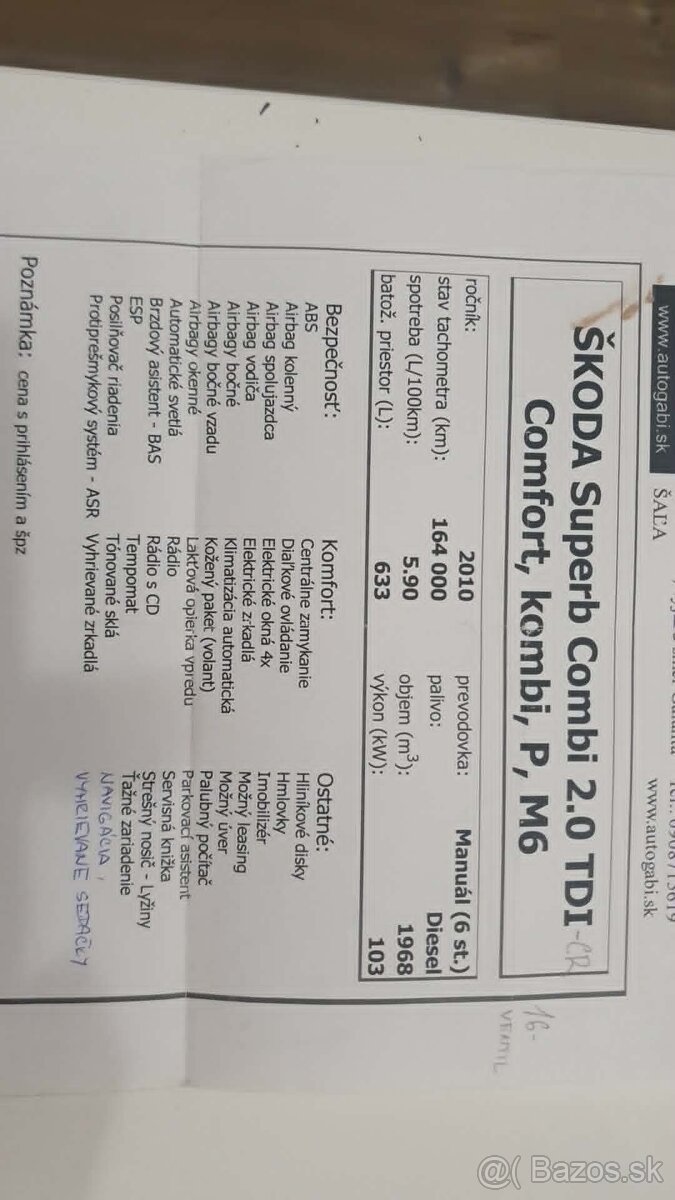 www.autogabi.sk
ŠAĽA
www.autogabi.sk
ŠKODA Superb Combi 2.0 TDI-CR
Comfort, kombi, P, M6
16-
VENTIL
ročník: 2010 prevodovka: Manuál (6 st.)
stav tachometra (km): 164 000 palivo: Diesel
spotreba (L/100km): 5.90 objem (m³): 1968
batož. priestor (L): 633 výkon (kW): 103
Bezpečnosť:
ABS
Airbag kolenný
Airbag spolujazdca
Airbag vodiča
Airbagy bočné
Airbagy bočné vzadu
Airbagy okenné
Automatické svetlá
Brzdový asistent - BAS
ESP
Posilňovač riadenia
Protiprešmykový systém - ASR
Komfort:
Centrálne zamykanie
Diaľkové ovládanie
Elektrické okná 4x
Elektrické zrkadlá
Klimatizácia automatická
Kožený paket (volant)
Lakťová opierka vpredu
Rádio
Rádio s CD
Tempomat
Tónované sklá
Vyhrievané zrkadlá
Ostatné:
Hliníkové disky
Hmlovky
Imobilizér
Možný leasing
Možný úver
Palubný počítač
Parkovací asistent
Servisná knižka
Strešný nosič - Lyžiny
Ťažné zariadenie
NAVIGÁCIA,
VYHRIEVANE SEDAČKY
Poznámka: cena s prihlásením a špz
@( Bazos.sk